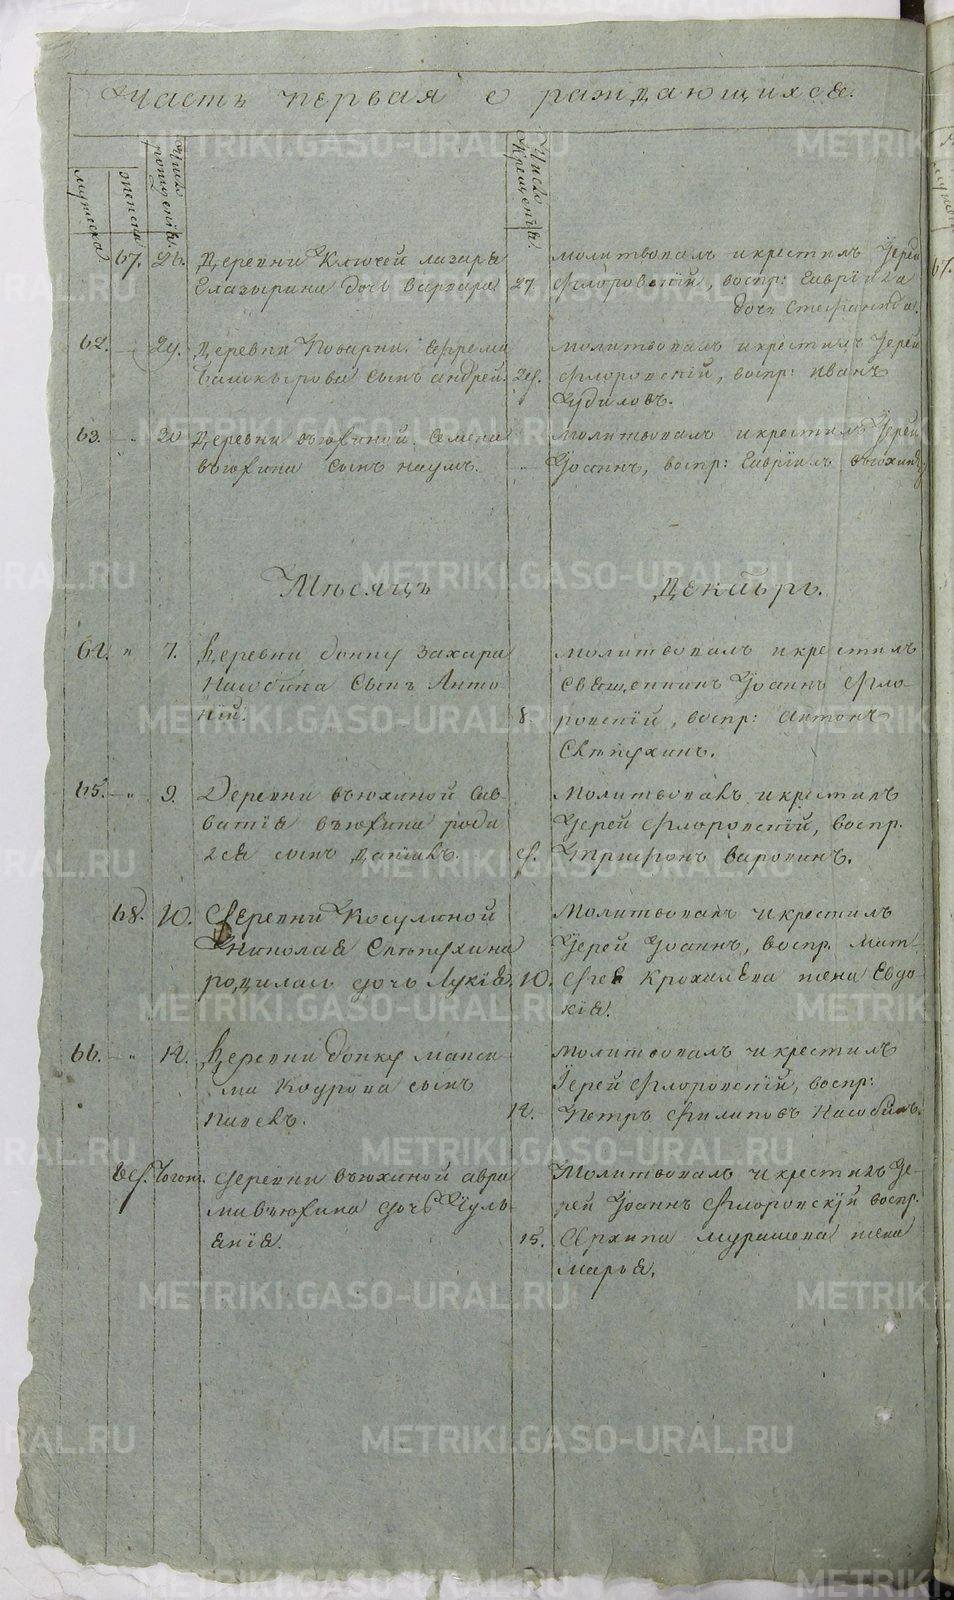 Часть первая о раждающихся.
мужеска
женска
Число рожденїя.
Число крещенїя.
67. 26. Деревни Ключей лазаря
Глазырина дочь варвара
27
молитвовалъ и крестилъ Iерей
Флоровскїй, воспр: Гаврїила
дочь Стефанида.
62. 29. Деревни Поварни Ефрема
Башкырова сынъ андрей. 29.
молитвовалъ и крестилъ Iерей
Флоровскїй, воспр: иванъ
Худиловъ.
63. " 30 Деревни вьюхиной Семена
вьюхина сынъ наумъ.
молитвовалъ и крестилъ Iерей
Iоаннъ, воспр: Гаврїилъ вьюхинъ
Мѣсяцъ Декабрь.
64. " 7. Деревни
Захара
Насобина Сынъ Анто-
нїй.
8.
молитвовалъ и крестилъ
Священникъ Iоаннъ Фло-
ровскїй, воспр: антонъ
Слѣпухинъ.
65. " 9. Деревни вьюхиной Сав-
ватїя вьюхина роди
лся сынъ Данїилъ.
9.
Молитвовалъ и крестилъ
Iерей Флоровскїй, воспр.
Трифонъ Варовинъ.
68. 10. Деревни Косулиной
Николая Слѣпухина
родилась дочь Лукїя. 10.
Молитвовалъ и крестилъ
Iерей Iоаннъ, воспр. Мат-
фея Крохалева жена Евдо-
кїя.
66. " 12. Деревни
макси-
ма Кодрова сынъ
Павелъ.
12.
молитвовалъ и крестилъ
Iерей Флоровскїй, воспр:
Петръ Филиповъ Насобинъ.
69. Тогож. Деревни вьюхиной авра
ма вьюхина дочь Iуль-
янїя.
15.
Молитвовалъ и крестилъ Iе-
рей Iоаннъ Флоровскїй воспр.
Архипа мурашева жена
марья.
METRIKI.GASO-URAL.RU